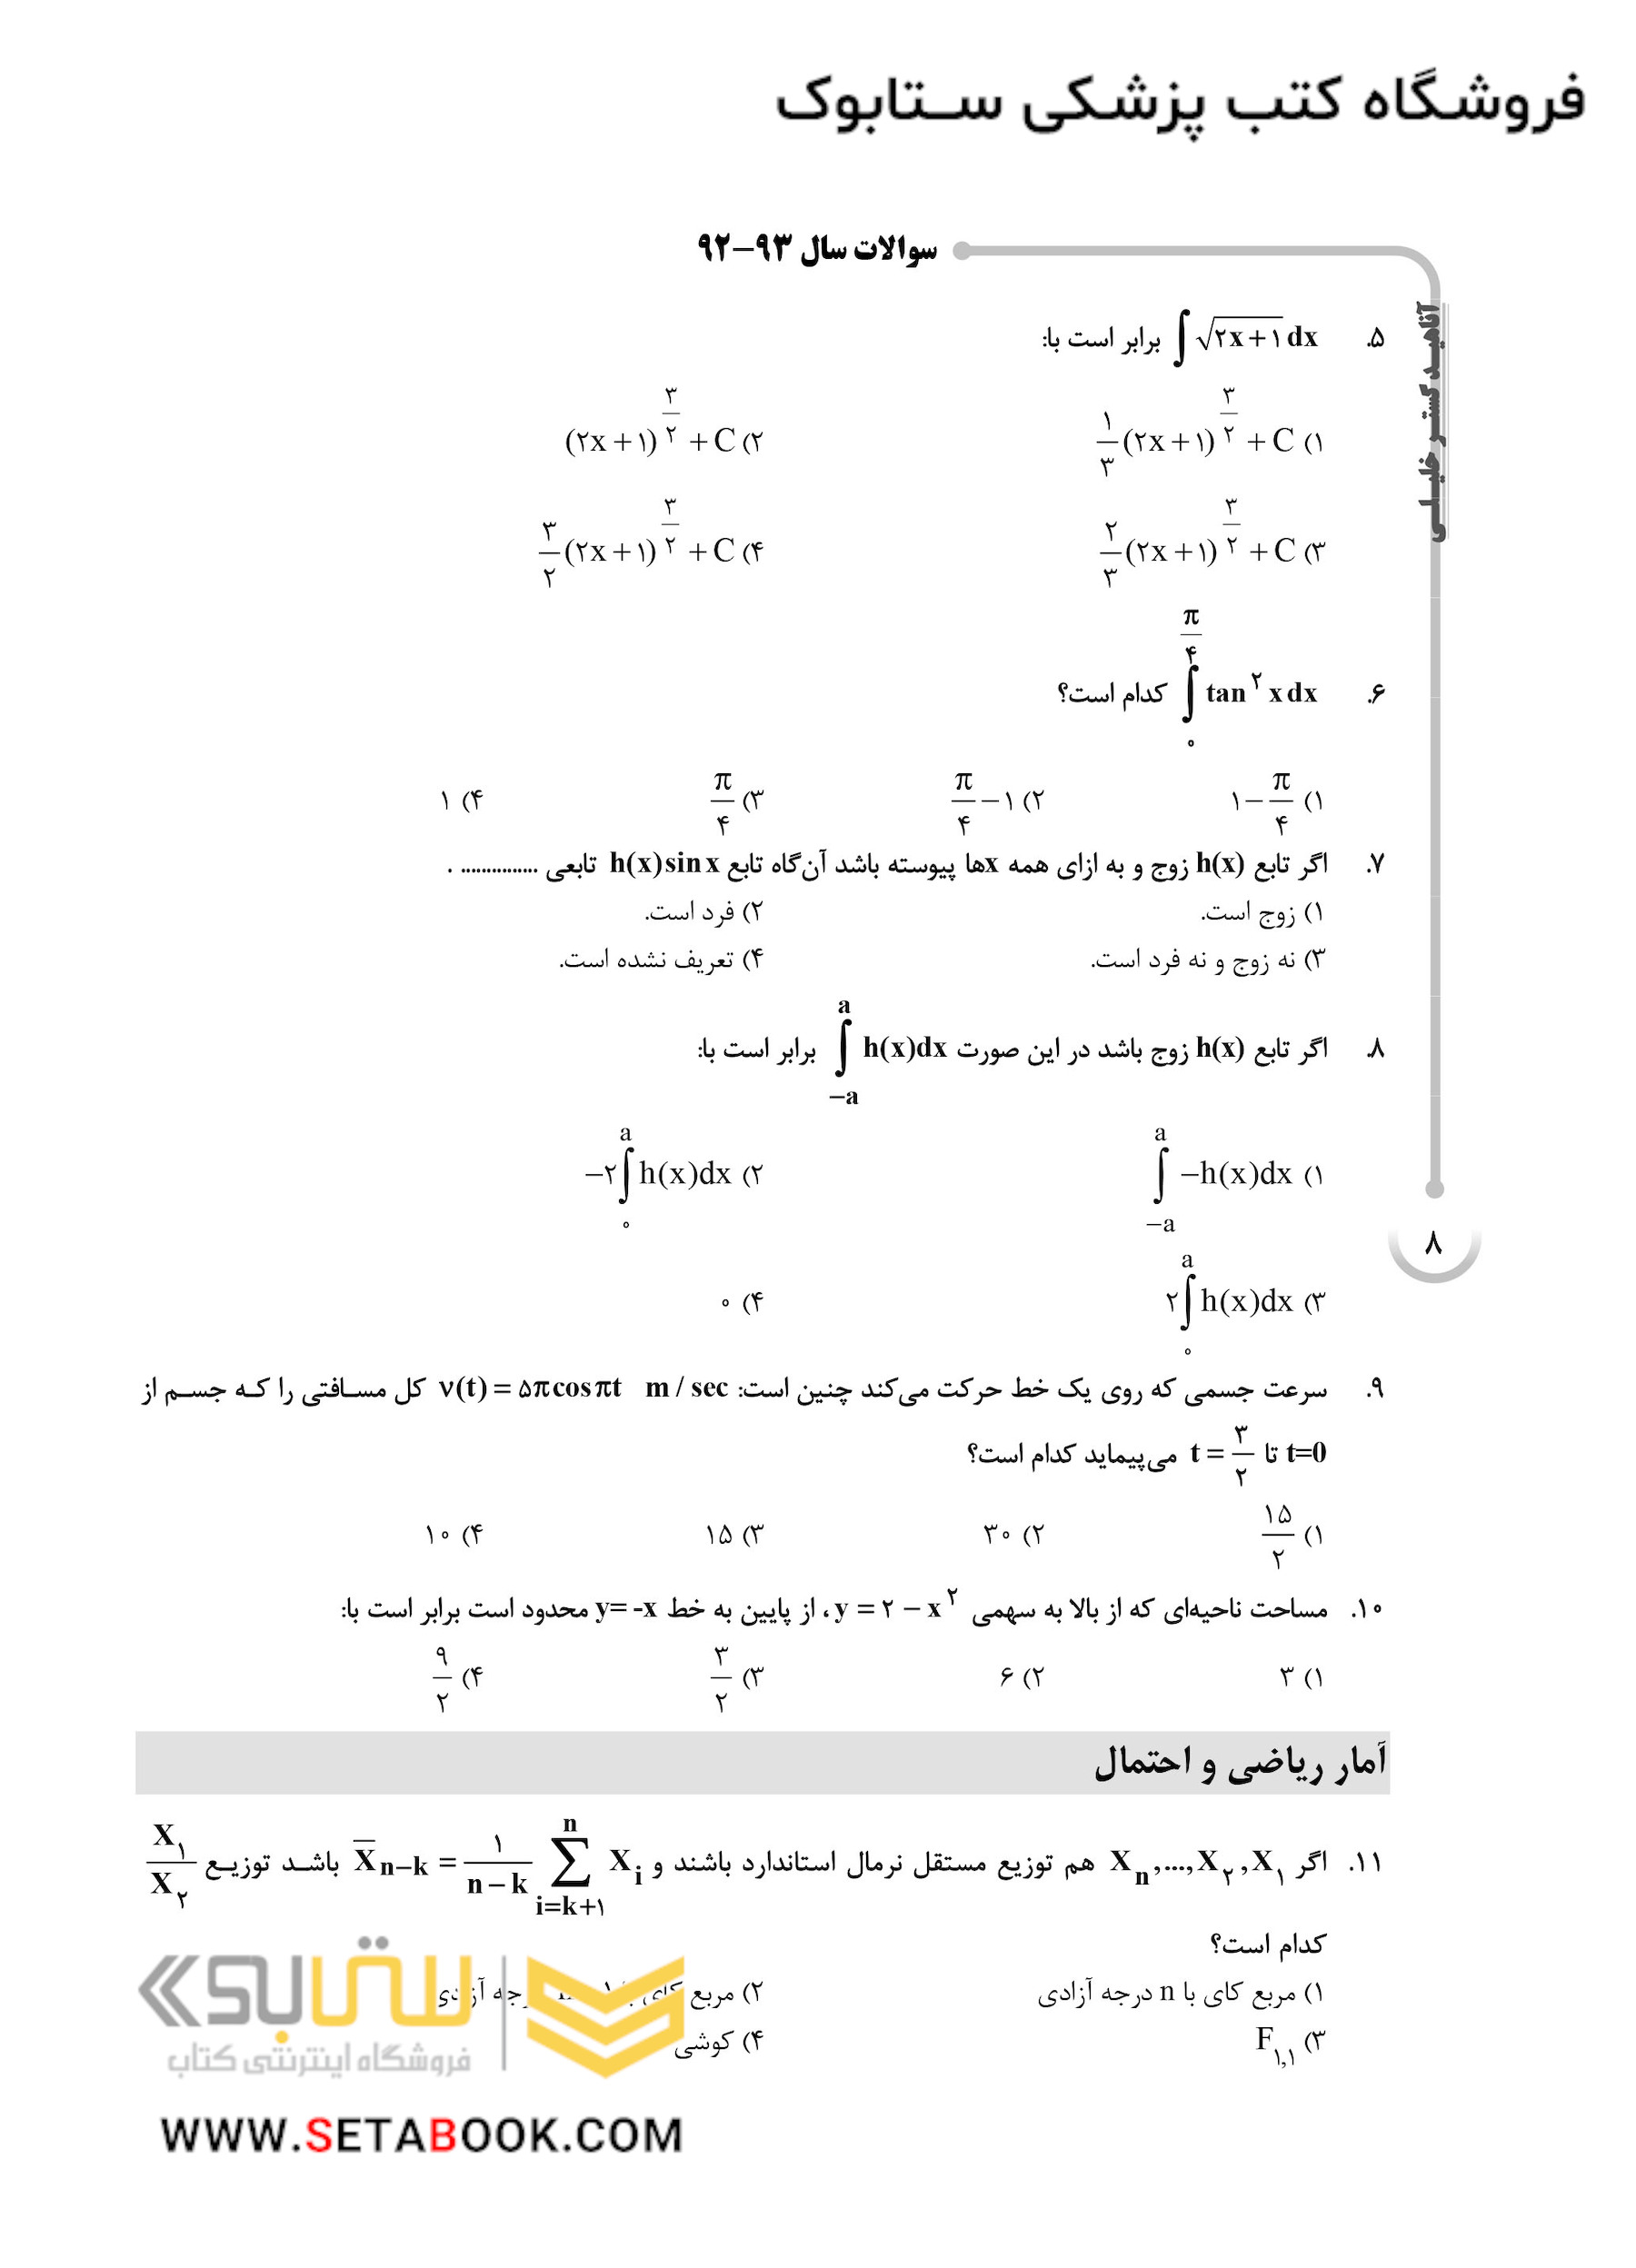 فروشگاه کتب پزشکی ستابوک
سوالات سال ۹۳–۹۲
آناهید گستر خلیلی
۵. ∫ √(۲x+۱) dx برابر است با:
۱) ۱/۳ (۲x+۱)^(۳/۲) + C ۲) (۲x+۱)^(۳/۲) + C
۳) ۲/۳ (۲x+۱)^(۳/۲) + C ۴) ۳/۲ (۲x+۱)^(۳/۲) + C
۶. ∫_۰^(π/۴) tan^۲ x dx کدام است؟
۱) ۱−π/۴ ۲) π/۴−۱ ۳) π/۴ ۴) ۱
۷. اگر تابع h(x) زوج و به ازای همه xها پیوسته باشد آن‌گاه تابع h(x)sin x تابعی ............... .
۱) زوج است. ۲) فرد است.
۳) نه زوج و نه فرد است. ۴) تعریف نشده است.
۸. اگر تابع h(x) زوج باشد در این صورت ∫_(−a)^a h(x)dx برابر است با:
۱) ∫_(−a)^a −h(x)dx ۲) −۲∫_۰^a h(x)dx
۳) ۲∫_۰^a h(x)dx ۴) ۰
۸
۹. سرعت جسمی که روی یک خط حرکت می‌کند چنین است: v(t) = ۵π cos πt m / sec کل مسافتی را که جسم از
t=0 تا t = ۳/۲ می‌پیماید کدام است؟
۱) ۱۵/۲ ۲) ۳۰ ۳) ۱۵ ۴) ۱۰
۱۰. مساحت ناحیه‌ای که از بالا به سهمی y = ۲ − x^۲، از پایین به خط y= -x محدود است برابر است با:
۱) ۳ ۲) ۶ ۳) ۳/۲ ۴) ۹/۲
آمار ریاضی و احتمال
۱۱. اگر X_۱, X_۲, ..., X_n هم توزیع مستقل نرمال استاندارد باشند و X̄_(n−k) = ۱/(n−k) ∑_(i=k+۱)^n X_i باشد توزیع X_۱/X_۲
کدام است؟
۱) مربع کای با n درجه آزادی ۲) مربع کای آزادی
۳) F_۱,۱ ۴) کوشی
ستابوک
فروشگاه اینترنتی کتاب
WWW.SETABOOK.COM